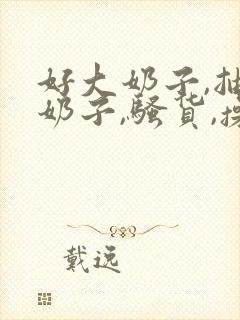 好大奶子,抽
奶子,骚货,操
戴逸